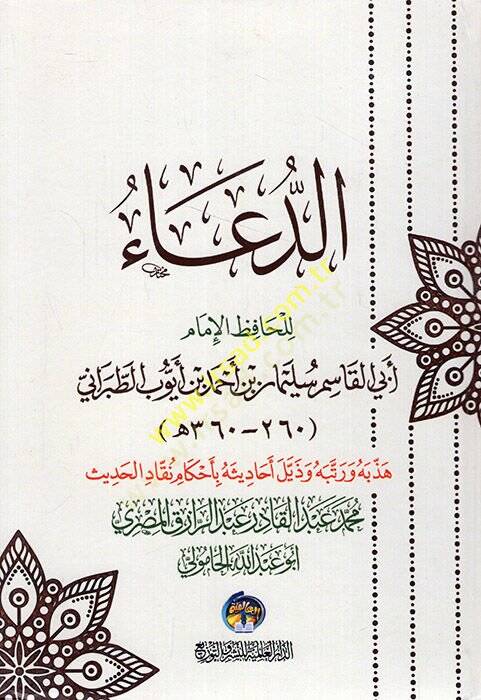 الدُّعَاءُ
لِلْحَافِظِ الإِمَامِ
أَبِي القَاسِمِ سُلَيْمَانَ بْنِ أَحْمَدَ بْنِ أَيُّوبَ الطَّبَرَانِيّ
(٢٦٠-٣٦٠هـ)
هَذَّبَهُ وَرَتَّبَهُ وَذَيَّلَ أَحَادِيثَهُ بِأَحْكَامِ نُقَّادِ الحَدِيثِ
مُحَمَّد عَبْدُ القَادِرِ عَبْدُ الرَّازِقِ المِصْرِي
أبو عبد الله الحامولي
العالمية
الدار العالمية للنشر والتوزيع